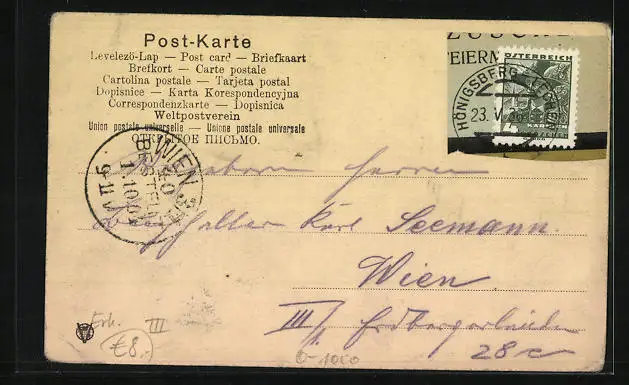 Post-Karte
Levelező-Lap — Post card — Briefkaart
Brefkort — Carte postale
Cartolina postale — Tarjeta postal
Dopisnice — Karta Korespondencyjna
Correspondenzkarte — Dopisnica
Weltpostverein
Union postale universelle — Unione postale universale
ОТКРЫТОЕ ПИСЬМО.
ÖSTERREICH
HÖNIGSBERG
23. V.
WIEN
BESTELLT
Herren
Karl Seemann.
Wien
III/1
28
Erh. III
€8.
0-1000